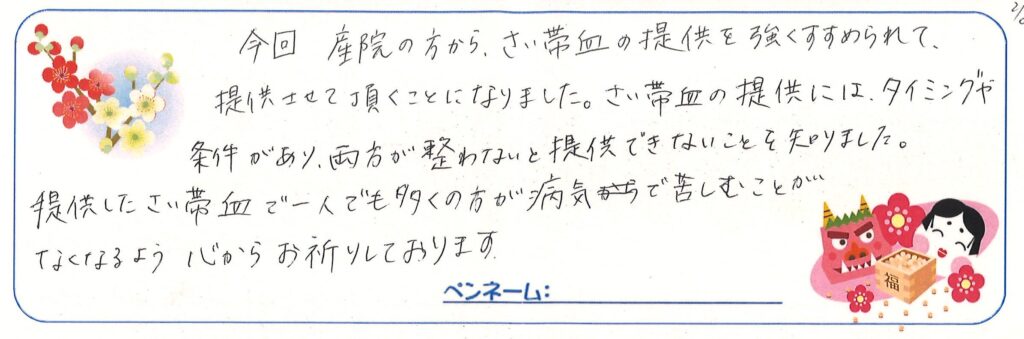 今回 産院の方から、さい帯血の提供を強くすすめられて、
提供させて頂くことになりました。さい帯血の提供には、タイミングや
条件があり、両方が整わないと提供できないことを知りました。
提供したさい帯血で一人でも多くの方が病気で苦しむことが
なくなるよう 心からお祈りしております。
ペンネーム:
福